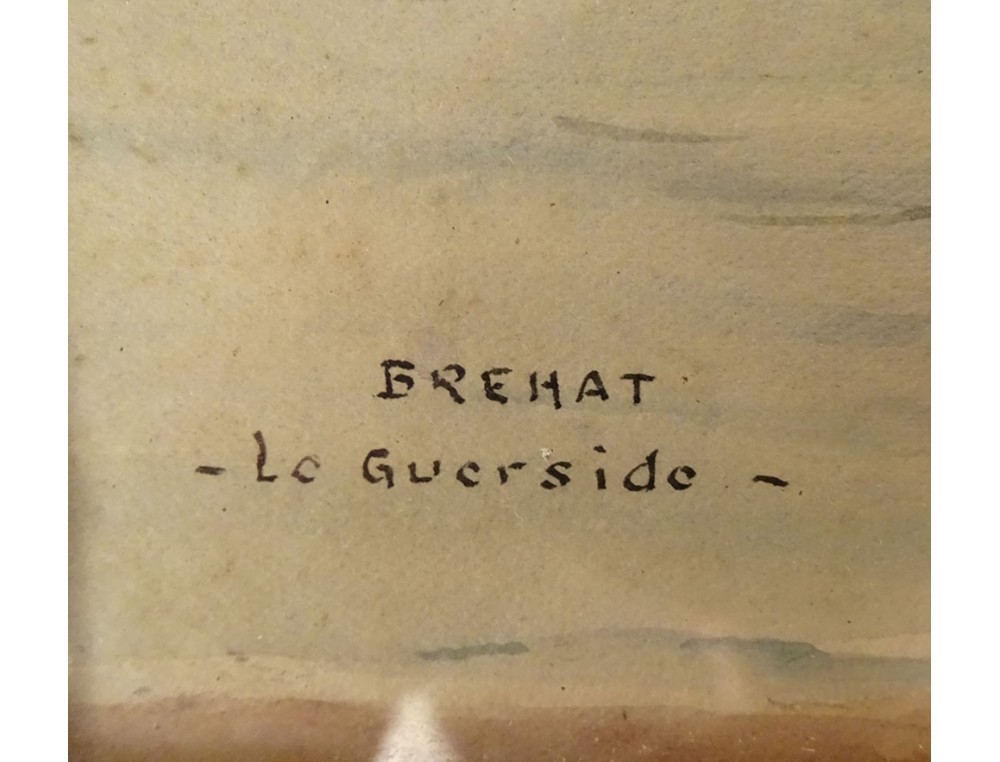 BREHAT
- Le Guerside -